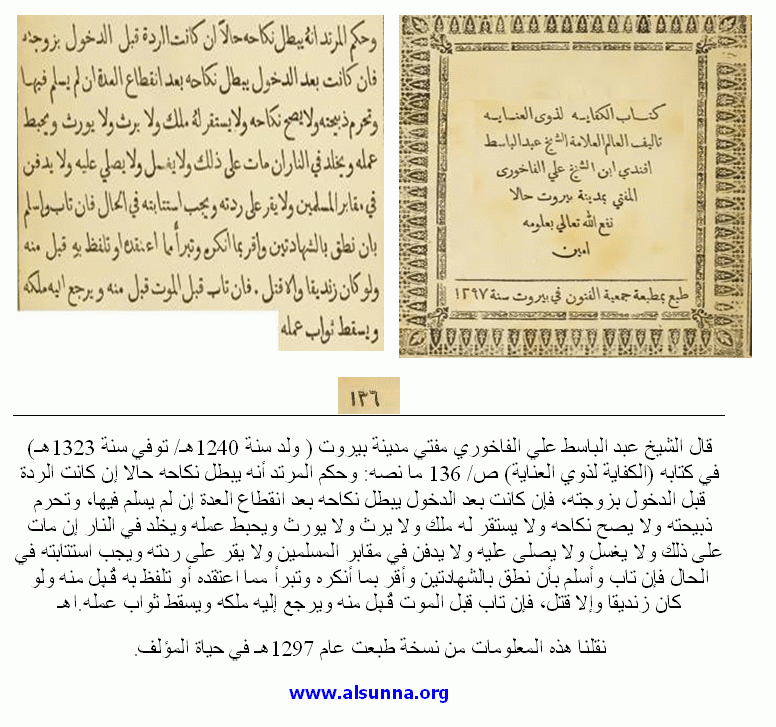 وحكم المرتد انهُ يبطل نكاحه حالاً ان كانت الردة قبل الدخول بزوجته
فان كانت بعد الدخول يبطل نكاحه بعد انقطاع العدة ان لم يسلم فيها
وتحرم ذبيحته ولا يصح نكاحه ولا يستقر لهُ ملك ولا يرث ولا يورث ويحبط
عمله ويخلد في النار ان مات على ذلك ولا يغسل ولا يصلي عليه ولا يدفن
في مقابر المسلمين ولا يقر على ردته ويجب استتابته في الحال فان تاب واسلم
بان نطق بالشهادتين واقر بما انكره وتبرأ مما اعتقده او تلفظ بهِ قبل منه
ولو كان زنديقا والا قتل . فان تاب قبل الموت قبل منه و يرجع اليه ملكه
ويسقط ثواب عمله
كتاب الكفايه لذوى العنايه
تاليف العالم العلامة الشيخ عبد الباسط
افندي ابن الشيخ علي الفاخورى
المفتي بمدينة بيروت حالا
نفع الله تعالي بعلومه
امين
طبع بمطبعة جمعية الفنون في بيروت سنة ١٢٩٧
١٣٦
قال الشيخ عبد الباسط علي الفاخوري مفتي مدينة بيروت ( ولد سنة 1240هـ/ توفي سنة 1323هـ)
في كتابه (الكفاية لذوي العناية) ص/ 136 ما نصه: وحكم المرتد أنه يبطل نكاحه حالا إن كانت الردة
قبل الدخول بزوجته، فإن كانت بعد الدخول يبطل نكاحه بعد انقطاع العدة إن لم يسلم فيها، وتحرم
ذبيحته ولا يصح نكاحه ولا يستقر له ملك ولا يرث ولا يورث ويحبط عمله ويخلد في النار إن مات
على ذلك ولا يغسل ولا يصلى عليه ولا يدفن في مقابر المسلمين ولا يقر على ردته ويجب استتابته في
الحال فإن تاب وأسلم بأن نطق بالشهادتين وأقر بما أنكره وتبرأ مما اعتقده أو تلفظ به قُبل منه ولو
كان زنديقا وإلا قتل، فإن تاب قبل الموت قُبل منه ويرجع إليه ملكه ويسقط ثواب عمله.اهـ
نقلنا هذه المعلومات من نسخة طبعت عام 1297هـ في حياة المؤلف.
www.alsunna.org